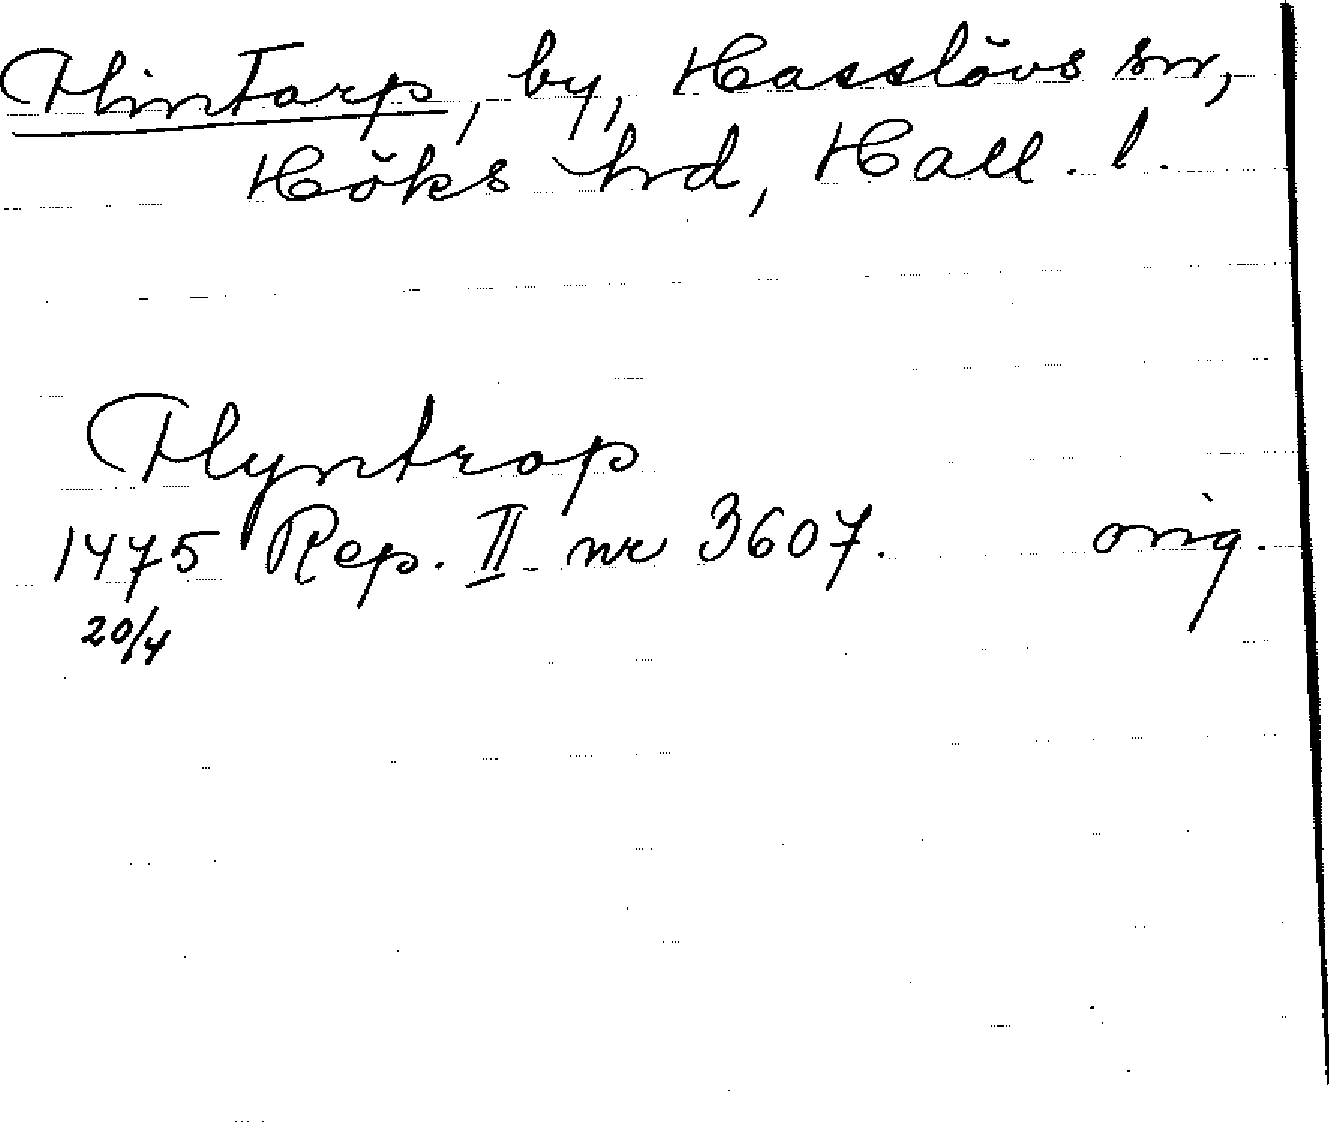 Hintarp, by, Hasslövs sn,
Höks hrd, Hall. l.
Hyntrop
1475 Rep. II nr 3607. orig.
20/4